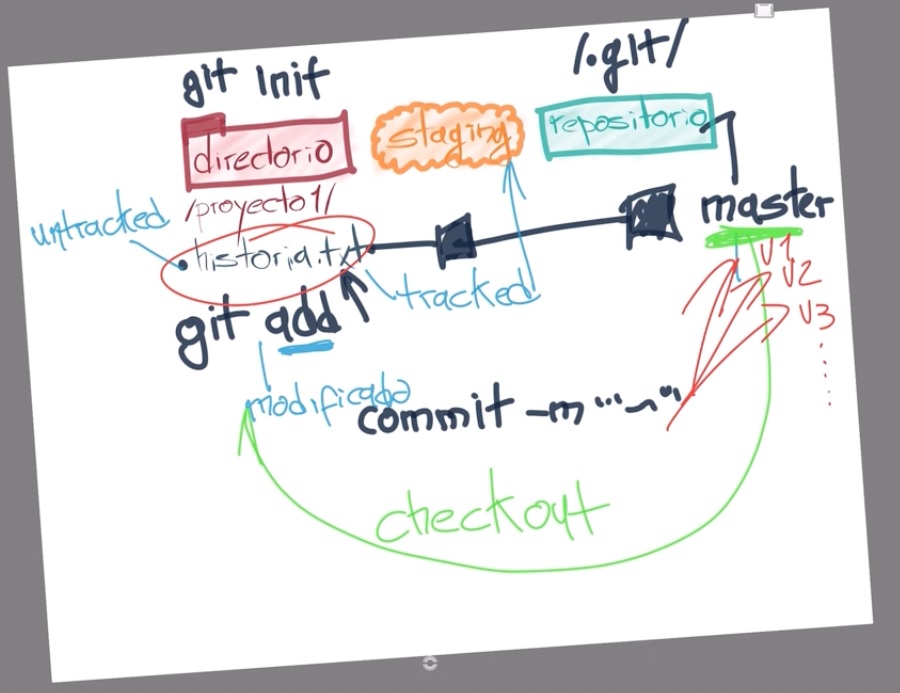 git init
/.git/
directorio
staging
repositorio
/proyecto1/
untracked
historia.txt
master
V1
V2
V3
tracked
git add
modificado
commit -m "~"
checkout